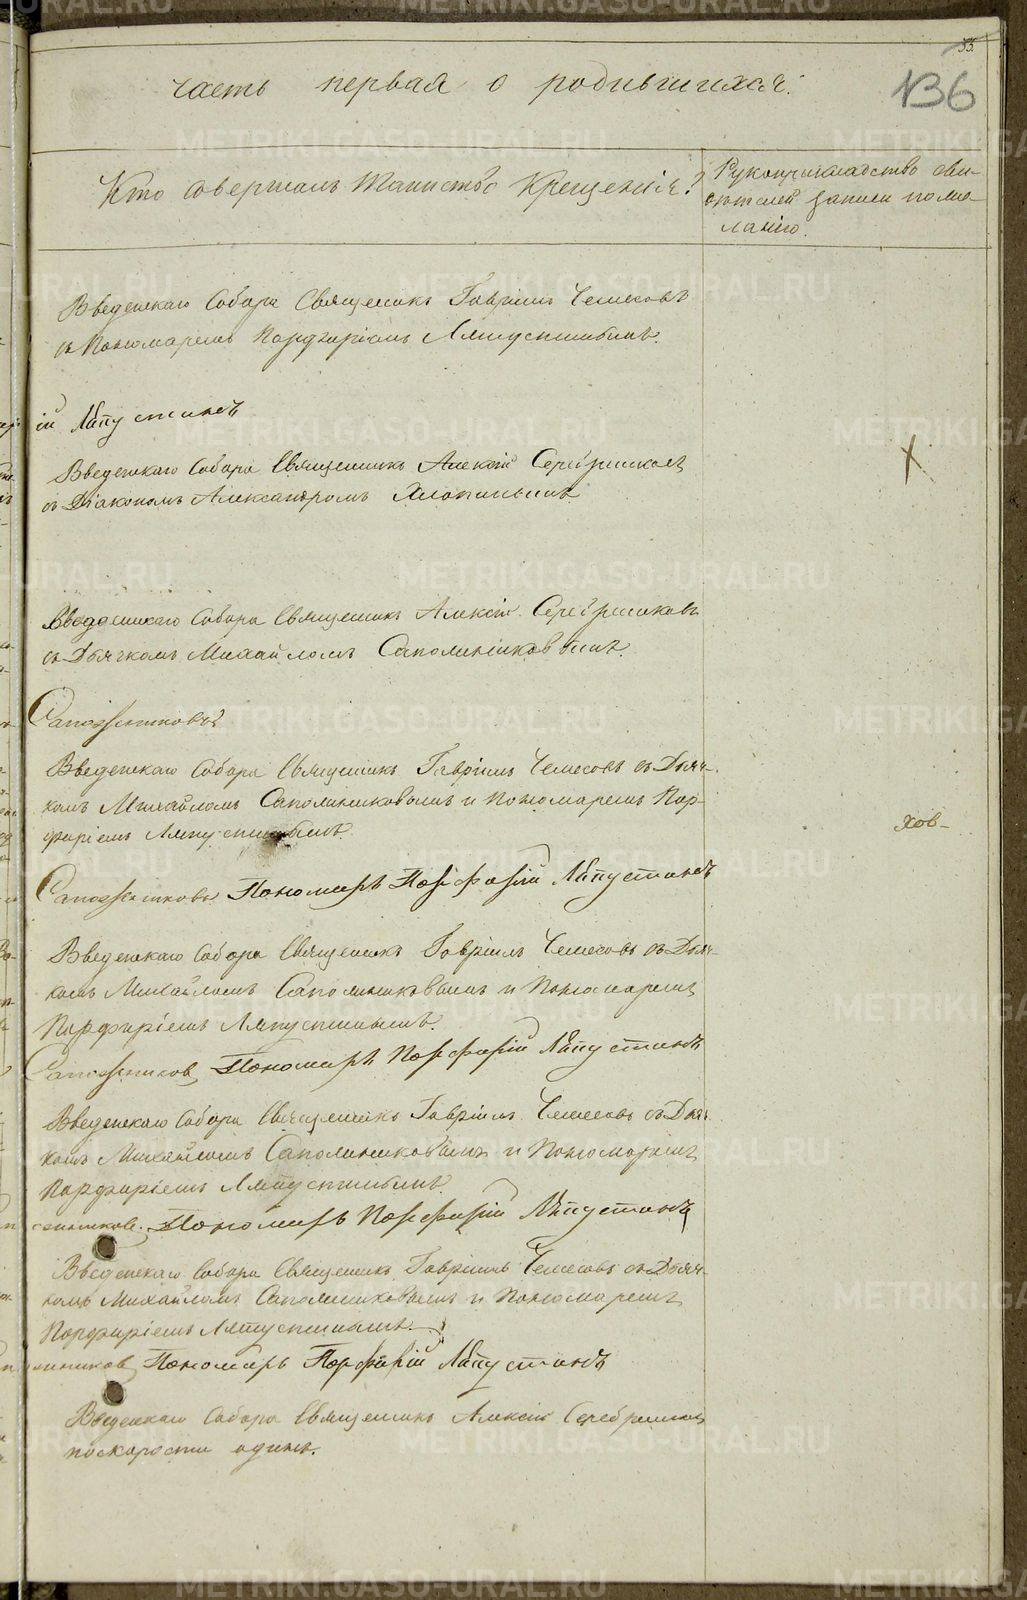 35.
136
часть первая о родившихся.
Кто совершалъ Таинство Крещенія?
Рукоприкладство сви-
дѣтелей записи по же-
ланію.
Введенскаго Собора Священникъ Гавріилъ Чемесовъ
съ Пономаремъ Парфиріемъ Ляпустинымъ.
ій Ляпустинъ
Введенскаго Собора Священникъ Алексій Серебренниковъ
съ Діакономъ Александромъ Хлопинымъ
Введенскаго Собора Священникъ Алексій Серебренниковъ
съ Дьячкомъ Михайломъ Сапожниковымъ.
Сапожниковъ
Введенскаго Собора Священникъ Гавріилъ Чемесовъ съ Дьяч-
комъ Михайломъ Сапожниковымъ и Пономаремъ Пар-
фиріемъ Ляпустинымъ.
Сапожниковъ Пономарь Порфирій Ляпустинъ
Введенскаго Собора Священникъ Гавріилъ Чемесовъ съ Дьяч-
комъ Михайломъ Сапожниковымъ и Пономаремъ
Парфиріемъ Ляпустинымъ.
Сапожников Пономарь Порфирій Ляпустинъ
Введенскаго Собора Священникъ Гавріилъ Чемесовъ съ Дьяч-
комъ Михайломъ Сапожниковымъ и Пономаремъ
Парфиріемъ Ляпустинымъ.
Пономарь Порфирій Ляпустинъ
Введенскаго Собора Священникъ Гавріилъ Чемесовъ съ Дьяч-
комъ Михайломъ Сапожниковымъ и Пономаремъ
Парфиріемъ Ляпустинымъ.
Пономарь Порфирій Ляпустинъ
Введенскаго Собора Священникъ Алексій Серебренниковъ
поскорости одинъ.
хов-
METRIKI.GASO-URAL.RU